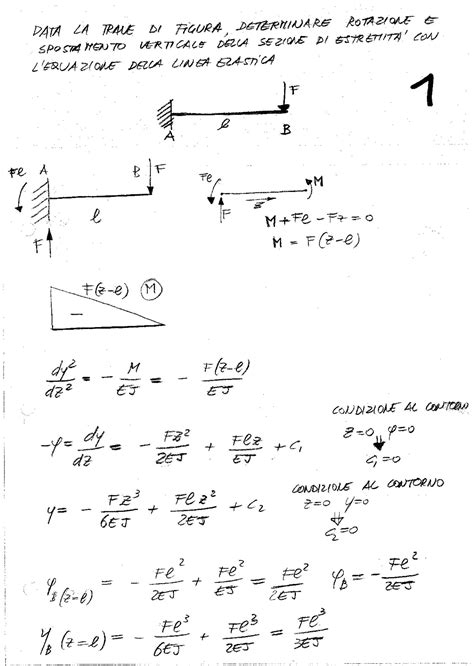 DATA LA TRAVE DI FIGURA, DETERMINARE ROTAZIONE E
SPOSTAMENTO VERTICALE DELLA SEZIONE DI ESTREMITA' CON
L'EQUAZIONE DELLA LINEA ELASTICA
1
F
A
l
B
Fl A B F
l
F
Fl M
F z
M + Fl - Fz = 0
M = F(z-l)
F(z-l) M
-
dy²/dz² = - M/EJ = - F(z-l)/EJ
CONDIZIONE AL CONTORNO
z=0 φ=0
c₁=0
-φ = dy/dz = - Fz²/2EJ + Flz/EJ + c₁
CONDIZIONE AL CONTORNO
z=0 y=0
c₂=0
y = - Fz³/6EJ + Flz²/2EJ + c₂
φ_B (z=l) = - Fl²/2EJ + Fl²/EJ = Fl²/2EJ φ_B = - Fl²/2EJ
y_B (z=l) = - Fl³/6EJ + Fl³/2EJ = Fl³/3EJ